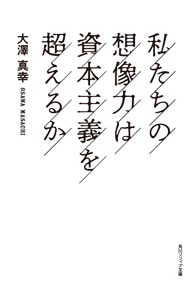 私たちの
想像力は
資本主義を
超えるか
大澤真幸
OSAWA MASACHI
角川ソフィア文庫